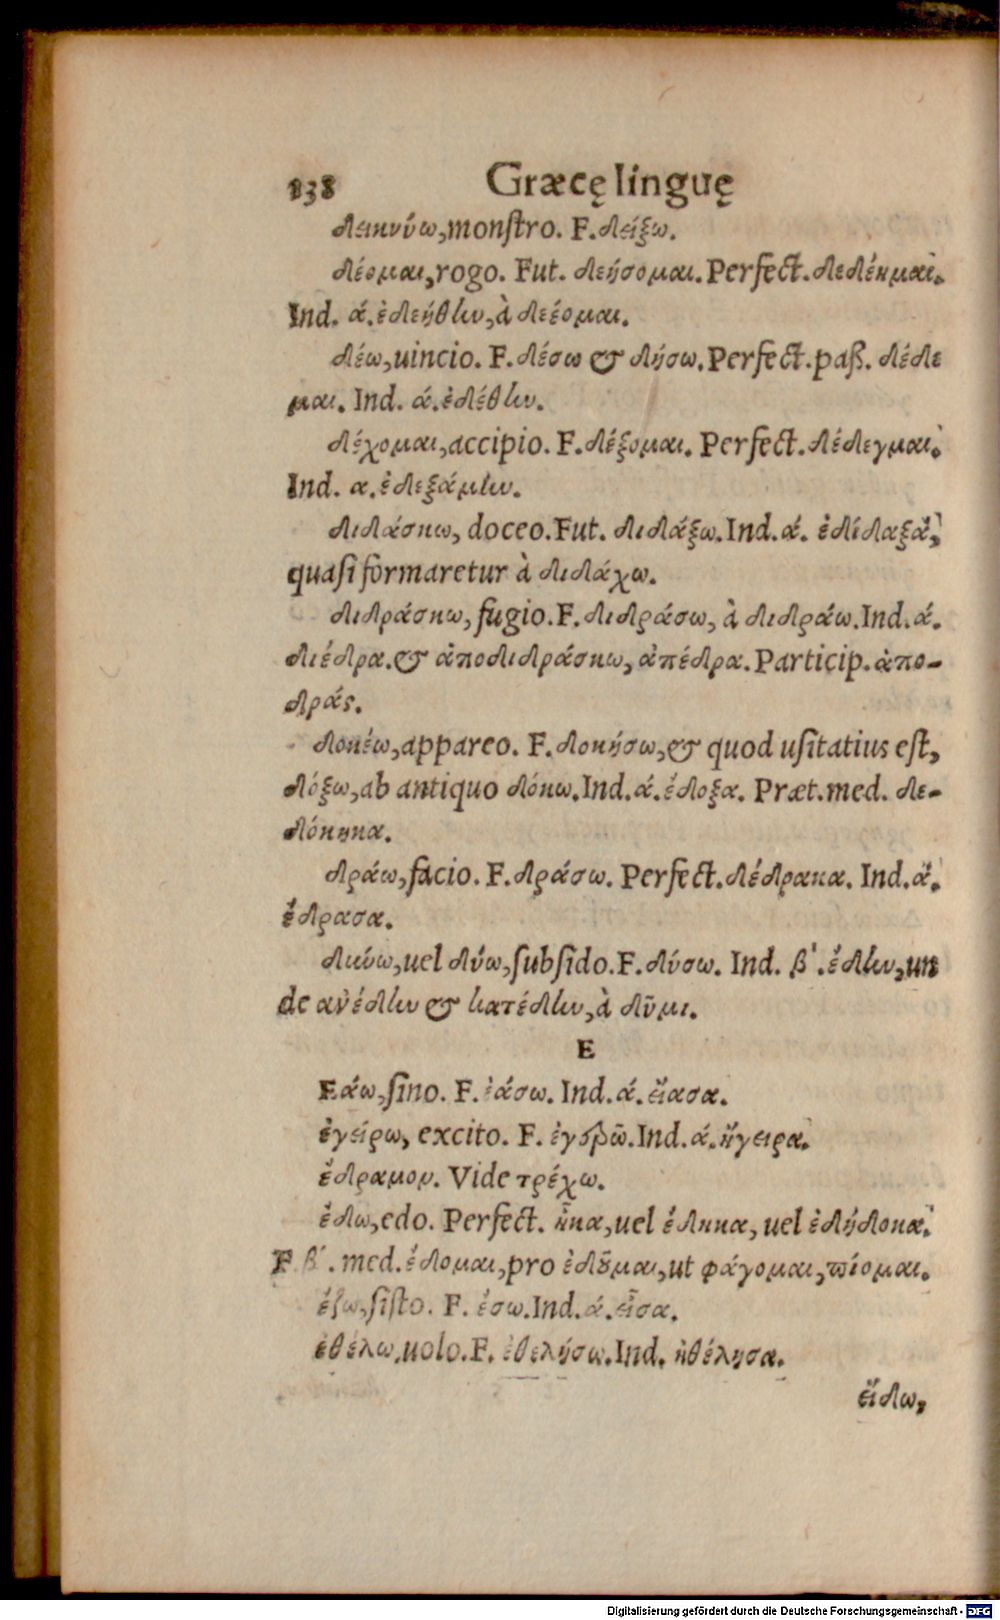 138 Græcę linguę
δεικνύω, monſtro. F. δείξω.
δέομαι, rogo. Fut. δεήσομαι. Perfect. δεδέημαι.
Ind. ά. ἐδεήθην, à δεέομαι.
δέω, uincio. F. δέσω & δήσω. Perfect. paß. δέδε
μαι. Ind. ά. ἐδέθην.
δέχομαι, accipio. F. δέξομαι. Perfect. δέδεγμαι.
Ind. α. ἐδεξάμην.
διδάσκω, doceo. Fut. διδάξω. Ind. ά. ἐδίδαξα,
quaſi formaretur à διδάχω.
διδράσκω, fugio. F. διδράσω, à διδράω. Ind. ά.
διέδρα. & ἀποδιδράσκω, ἀπέδρα. Particip. ἀπο-
δράς.
δοκέω, appareo. F. δοκήσω, & quod uſitatius eſt,
δόξω, ab antiquo δόκω. Ind. ά. ἔδοξα. Præt. med. δε-
δόκηκα.
δράω, facio. F. δράσω. Perfect. δέδρακα. Ind. ά.
ἔδρασα.
δικύω, uel δύω, ſubſido. F. δύσω. Ind. β΄. ἔδην, un
de ἀνέδην & κατέδην, à δῦμι.
E
Εάω, ſino. F. ἐάσω. Ind. ά. εἴασα.
ἐγείρω, excito. F. ἐγερῶ. Ind. ά. ἤγειρα.
ἔδραμον. Vide τρέχω.
ἔδω, edo. Perfect. ἦκα, uel ἔδηκα, uel ἐδήδοκα.
F. β΄. med. ἔδομαι, pro ἐδοῦμαι, ut φάγομαι, πίομαι.
ἕζω, ſiſto. F. ἕσω. Ind. ά. εἷσα.
ἐθέλω, uolo. F. ἐθελήσω. Ind. ἠθέλησα.
εἴδω,
Digitalisierung gefördert durch die Deutsche Forschungsgemeinschaft - DFG